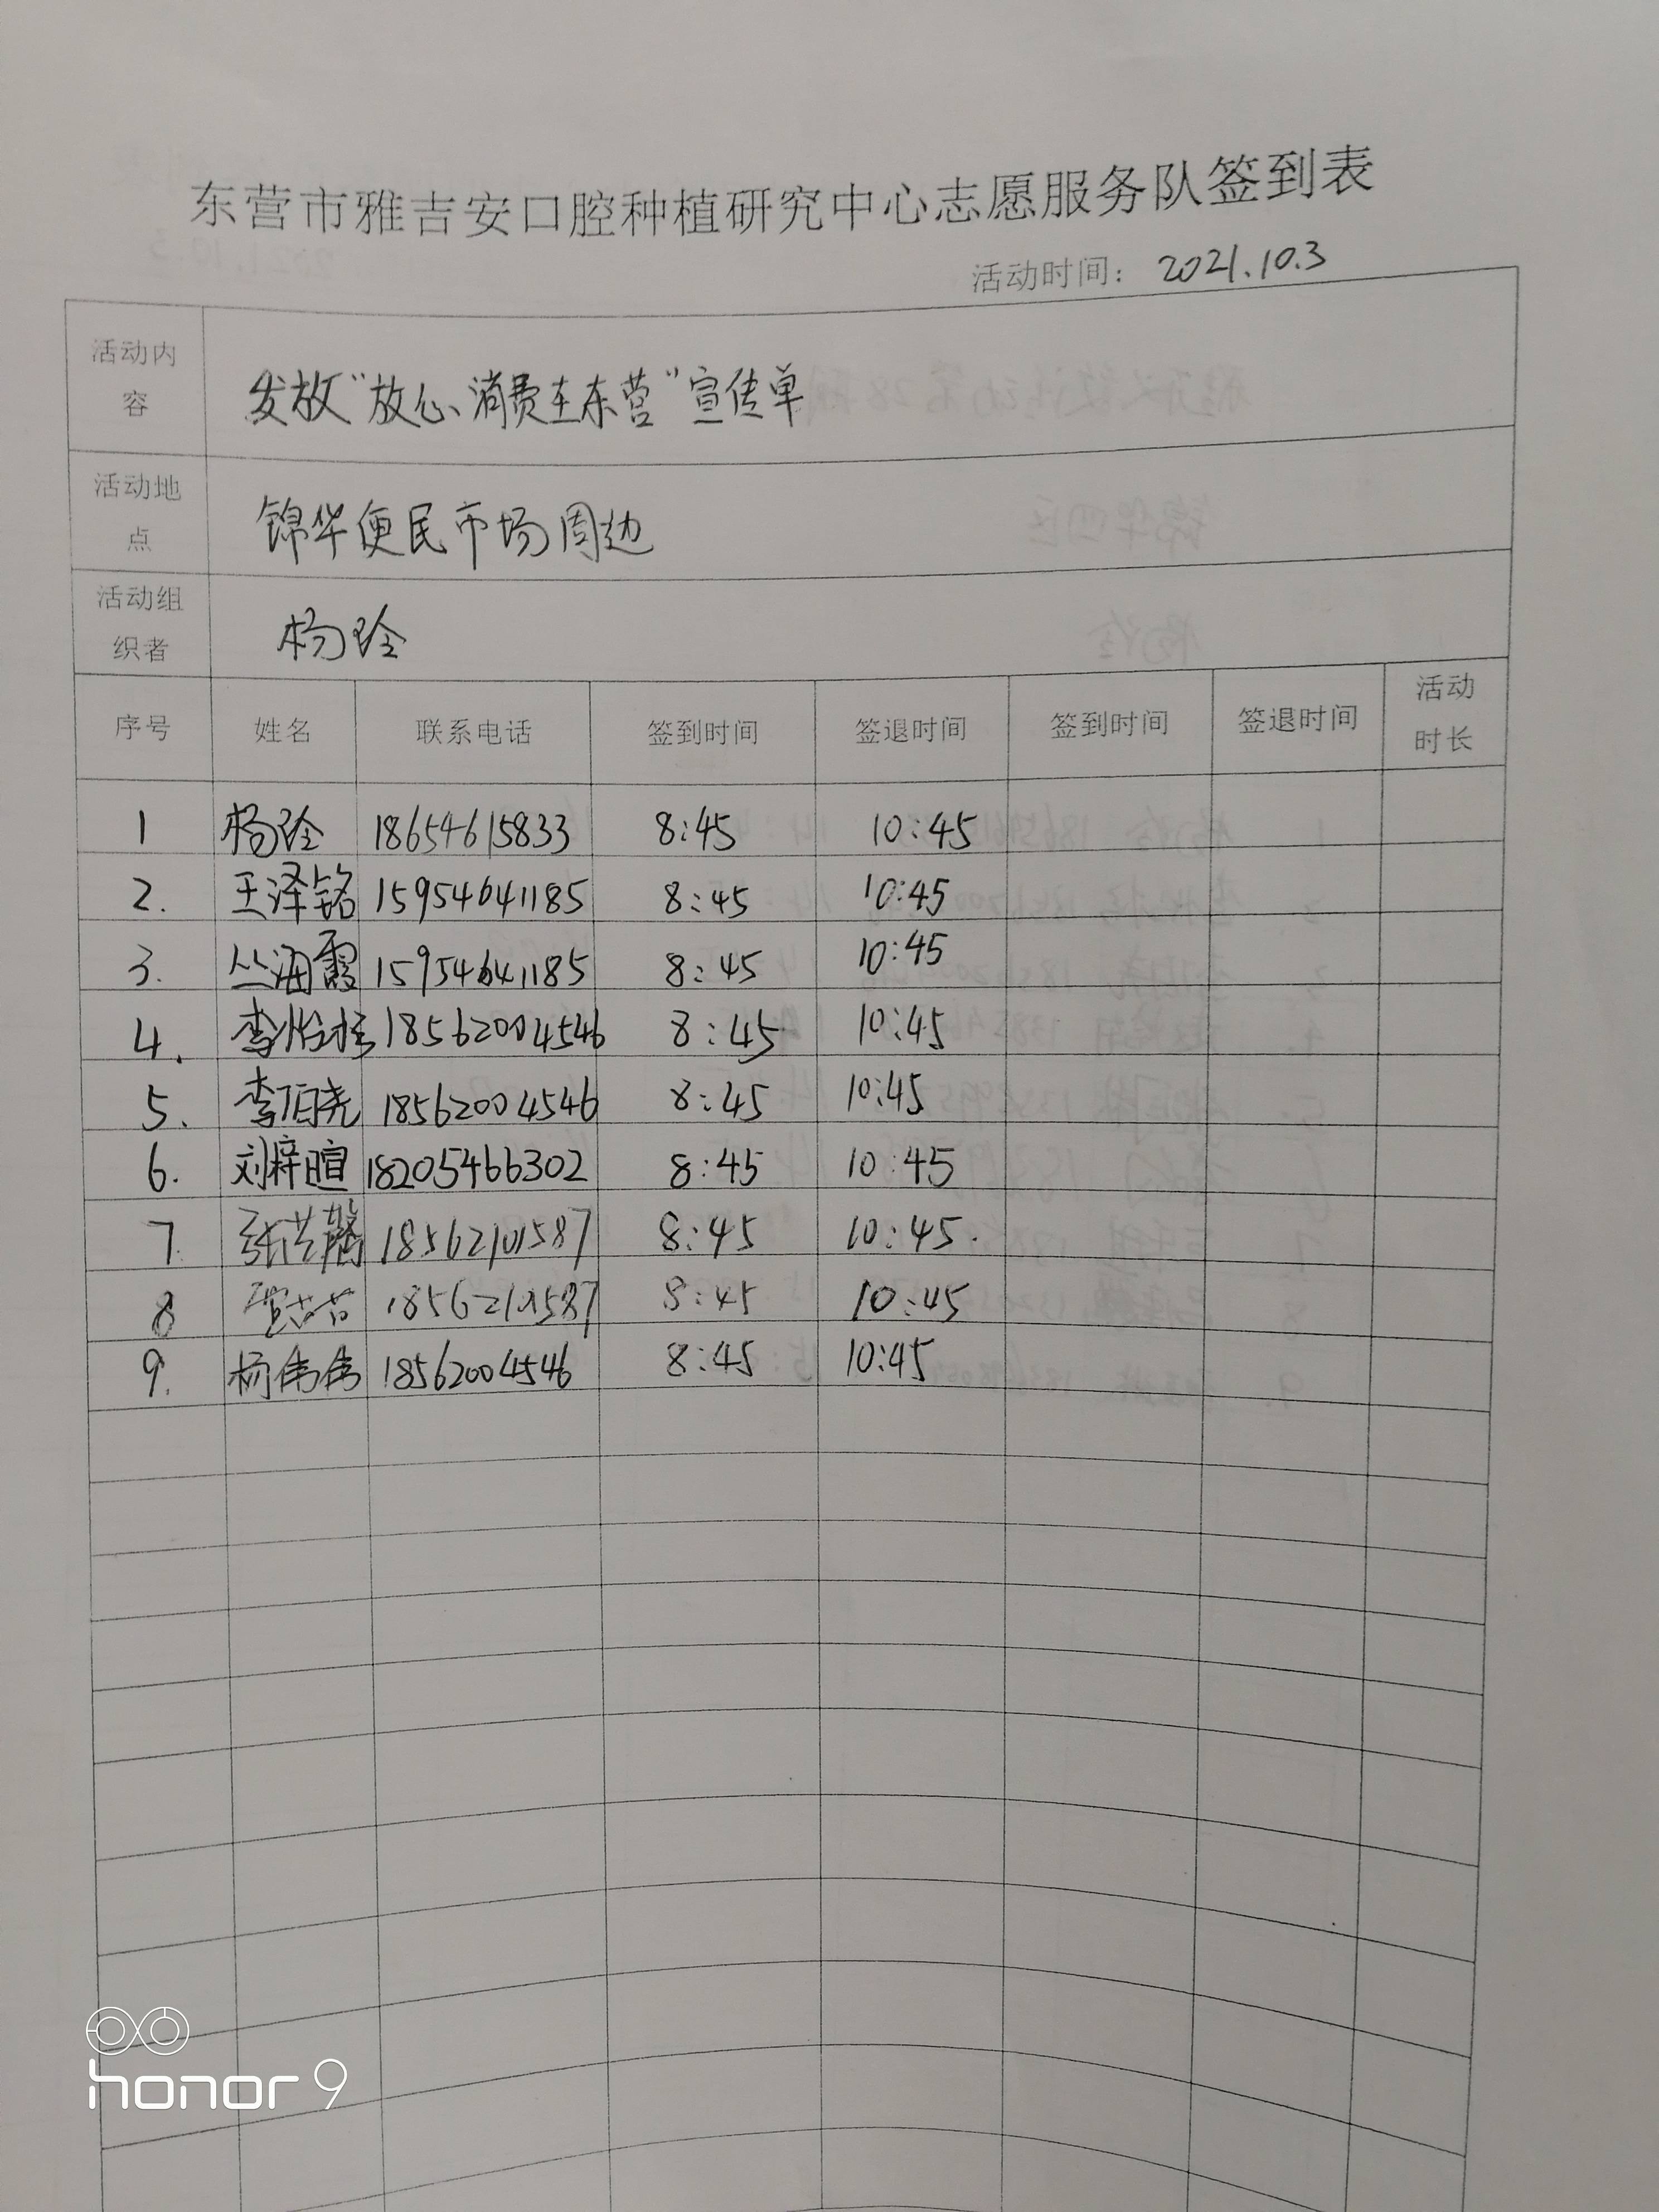 东营市雅吉安口腔种植研究中心志愿服务队签到表
活动时间： 2021.10.3
活动内容 发放“放心消费在东营”宣传单
活动地点 锦华便民市场周边
活动组织者 杨玲
序号 姓名 联系电话 签到时间 签退时间 签到时间 签退时间 活动时长
1 杨玲 18654615833 8:45 10:45
2. 王泽铭 15954641185 8:45 10:45
3. 丛海霞 15954641185 8:45 10:45
4. 李怡 18562004546 8:45 10:45
5. 李伯尧 18562004546 8:45 10:45
6. 刘梓暄 18205466302 8:45 10:45
7. 张艺馨 18562101587 8:45 10:45.
8 苦苦 18562101587 8:45 10:45
9. 杨伟伟 18562004546 8:45 10:45
honor 9